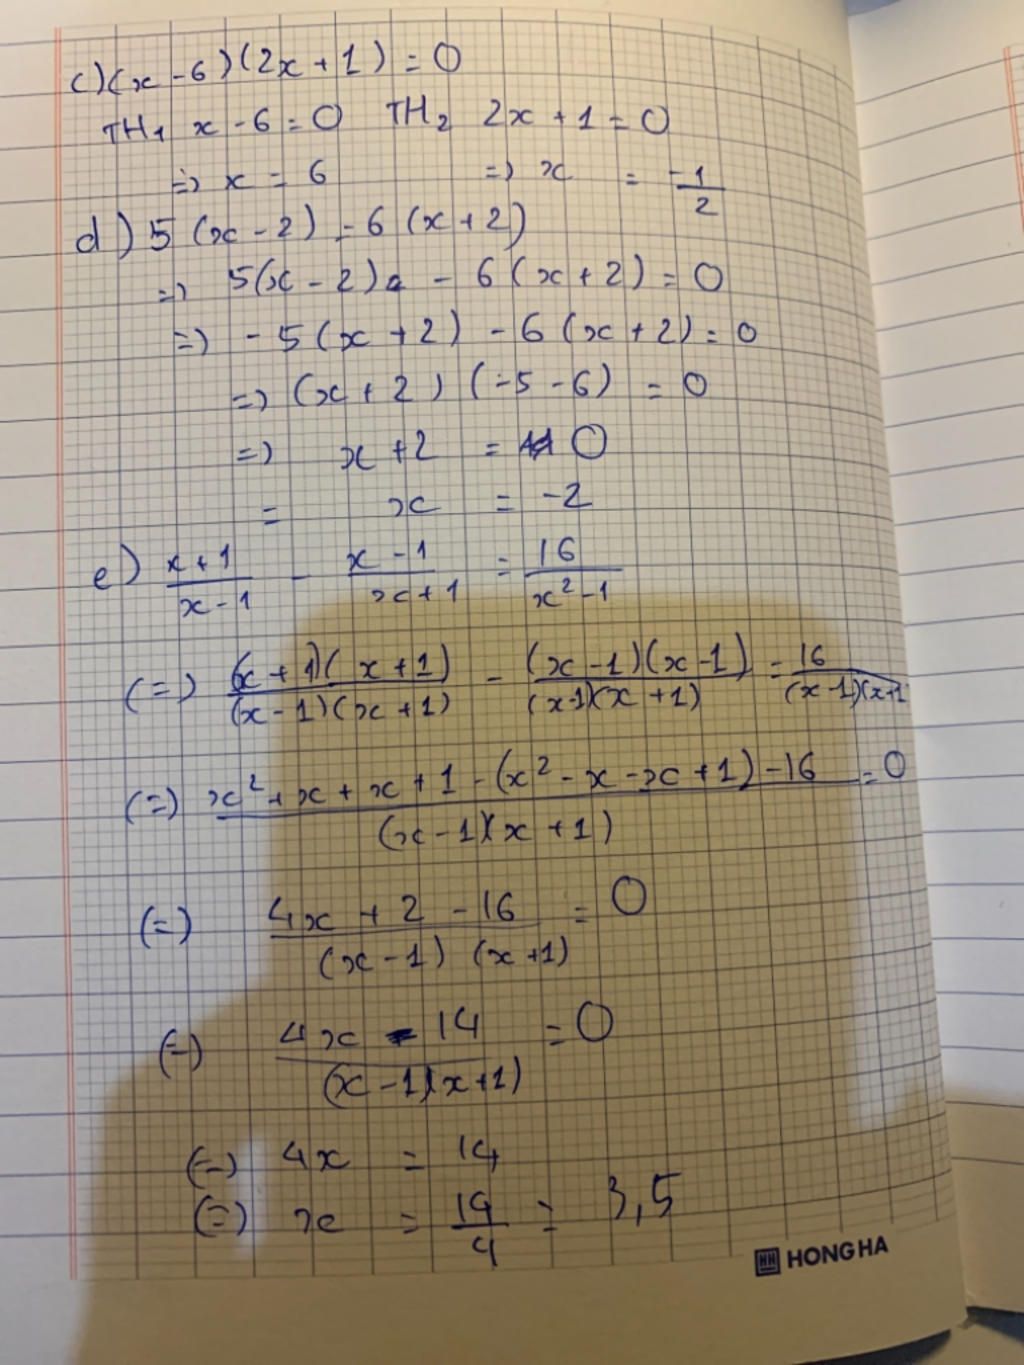 c) (x - 6)(2x + 1) = 0
TH1 x - 6 = 0 TH2 2x + 1 = 0
=> x = 6 => x = -1/2
d) 5(x - 2) = 6(x + 2)
=> 5(x - 2) - 6(x + 2) = 0
=> -5(x + 2) - 6(x + 2) = 0
=> (x + 2)(-5 - 6) = 0
=> x + 2 = 0
= x = -2
e) (x + 1)/(x - 1) - (x - 1)/(x + 1) = 16/(x² - 1)
(=) (x + 1)(x + 1)/(x - 1)(x + 1) - (x - 1)(x - 1)/(x - 1)(x + 1) = 16/(x - 1)(x + 1
(=) x² + x + x + 1 - (x² - x - x + 1) - 16/(x - 1)(x + 1) = 0
(=) 4x + 2 - 16/(x - 1)(x + 1) = 0
(=) 4x - 14/(x - 1)(x + 1) = 0
(=) 4x = 14
(=) x = 14/4 = 3,5
HH HONG HA